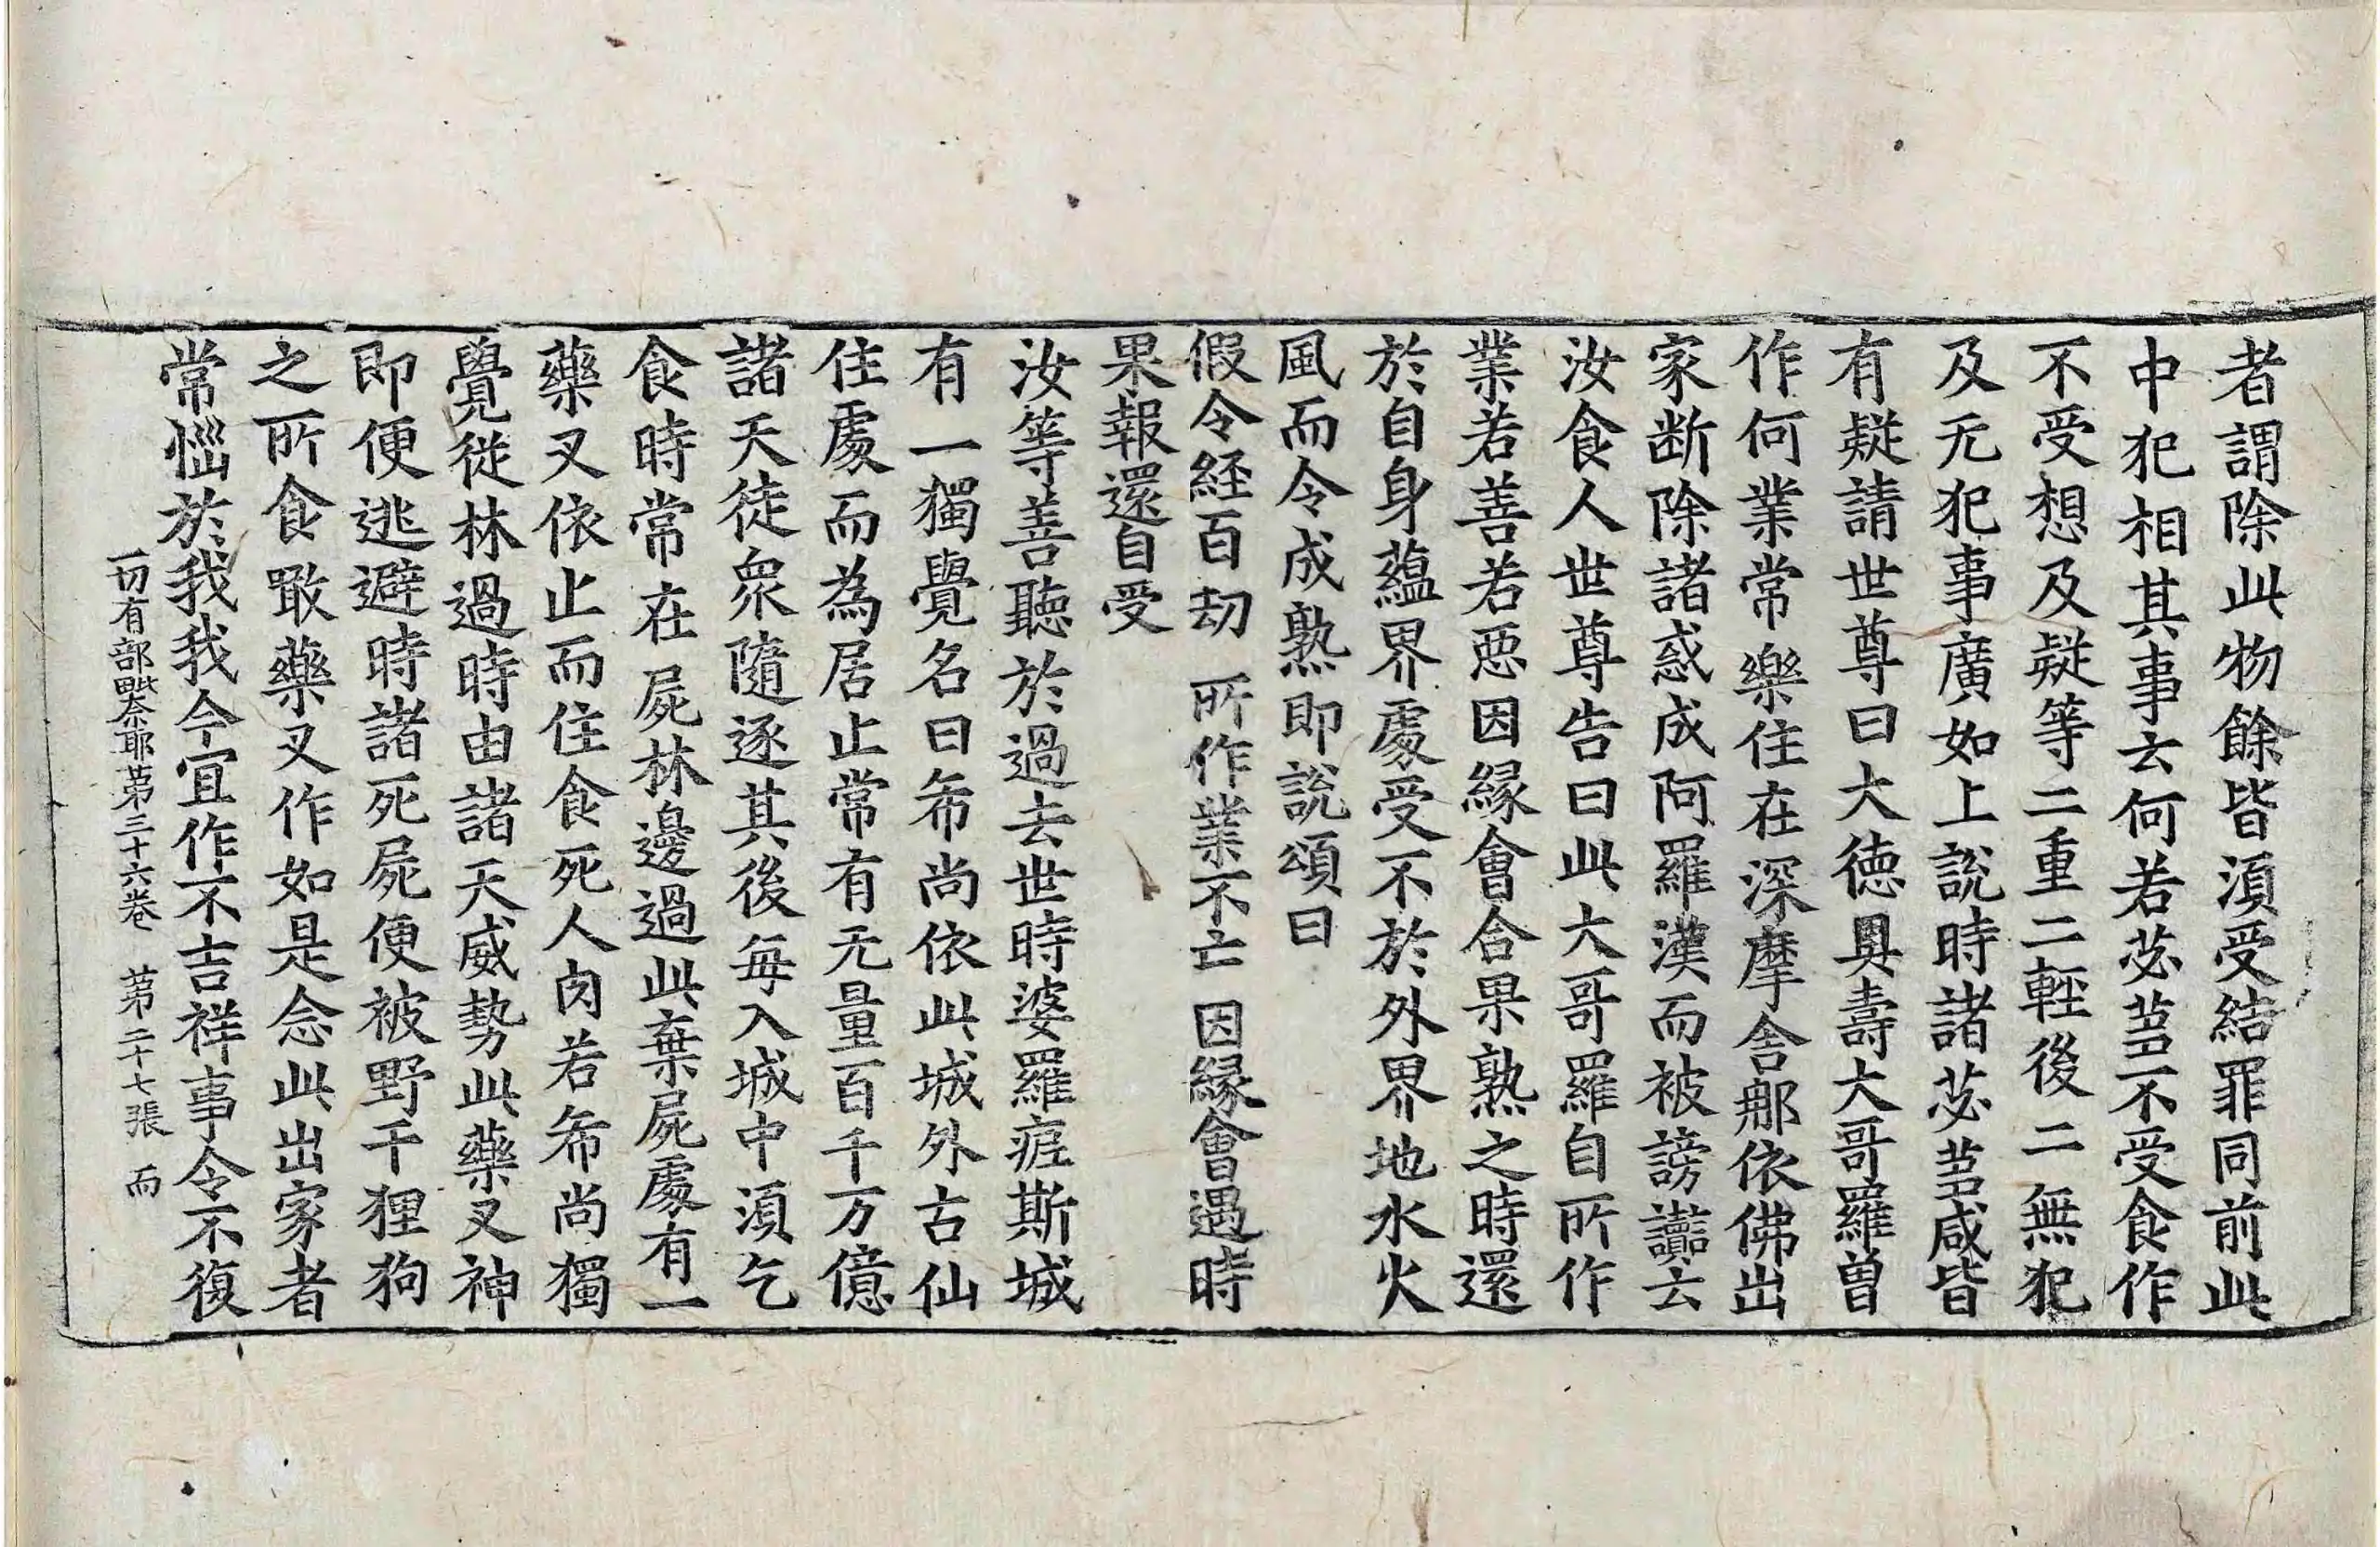 者謂除此物餘皆湏受結罪同前此
中犯相其事云何若苾蒭不受食作
不受想及疑等二重二輕後二無犯
及无犯事廣如上說時諸苾蒭咸皆
有疑請世尊曰大德具壽大哥羅曽
作何業常樂住在深摩舍那依佛出
家断除諸惑成阿羅漢而被謗讟云
汝食人世尊告曰此大哥羅自所作
業若善若惡因緣會合果熟之時還
於自身蘊界處受不於外界地水火
風而令成熟即說頌曰
假令経百刧 所作業不亡 因緣會遇時
果報還自受
汝等善聽於過去世時婆羅痆斯城
有一獨覺名曰布尚依此城外古仙
住處而為居止常有无量百千万億
諸天徒衆隨逐其後毎入城中湏乞
食時常在屍林邊過此棄屍處有一
藥叉依止而住食死人肉若布尚獨
覺從林過時由諸天威勢此藥叉神
即便逃避時諸死屍便被野干狸狗
之所食噉藥叉作如是念此出家者
常惱於我我今宜作不吉祥事令不復
一切有部毗奈耶第三十六卷 第二十七張 而